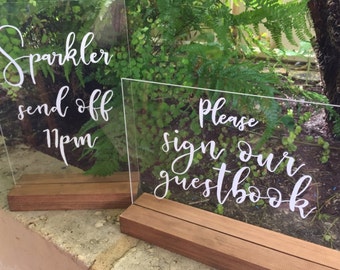 Sparkler
send off
11pm
Please
sign our
guestbook